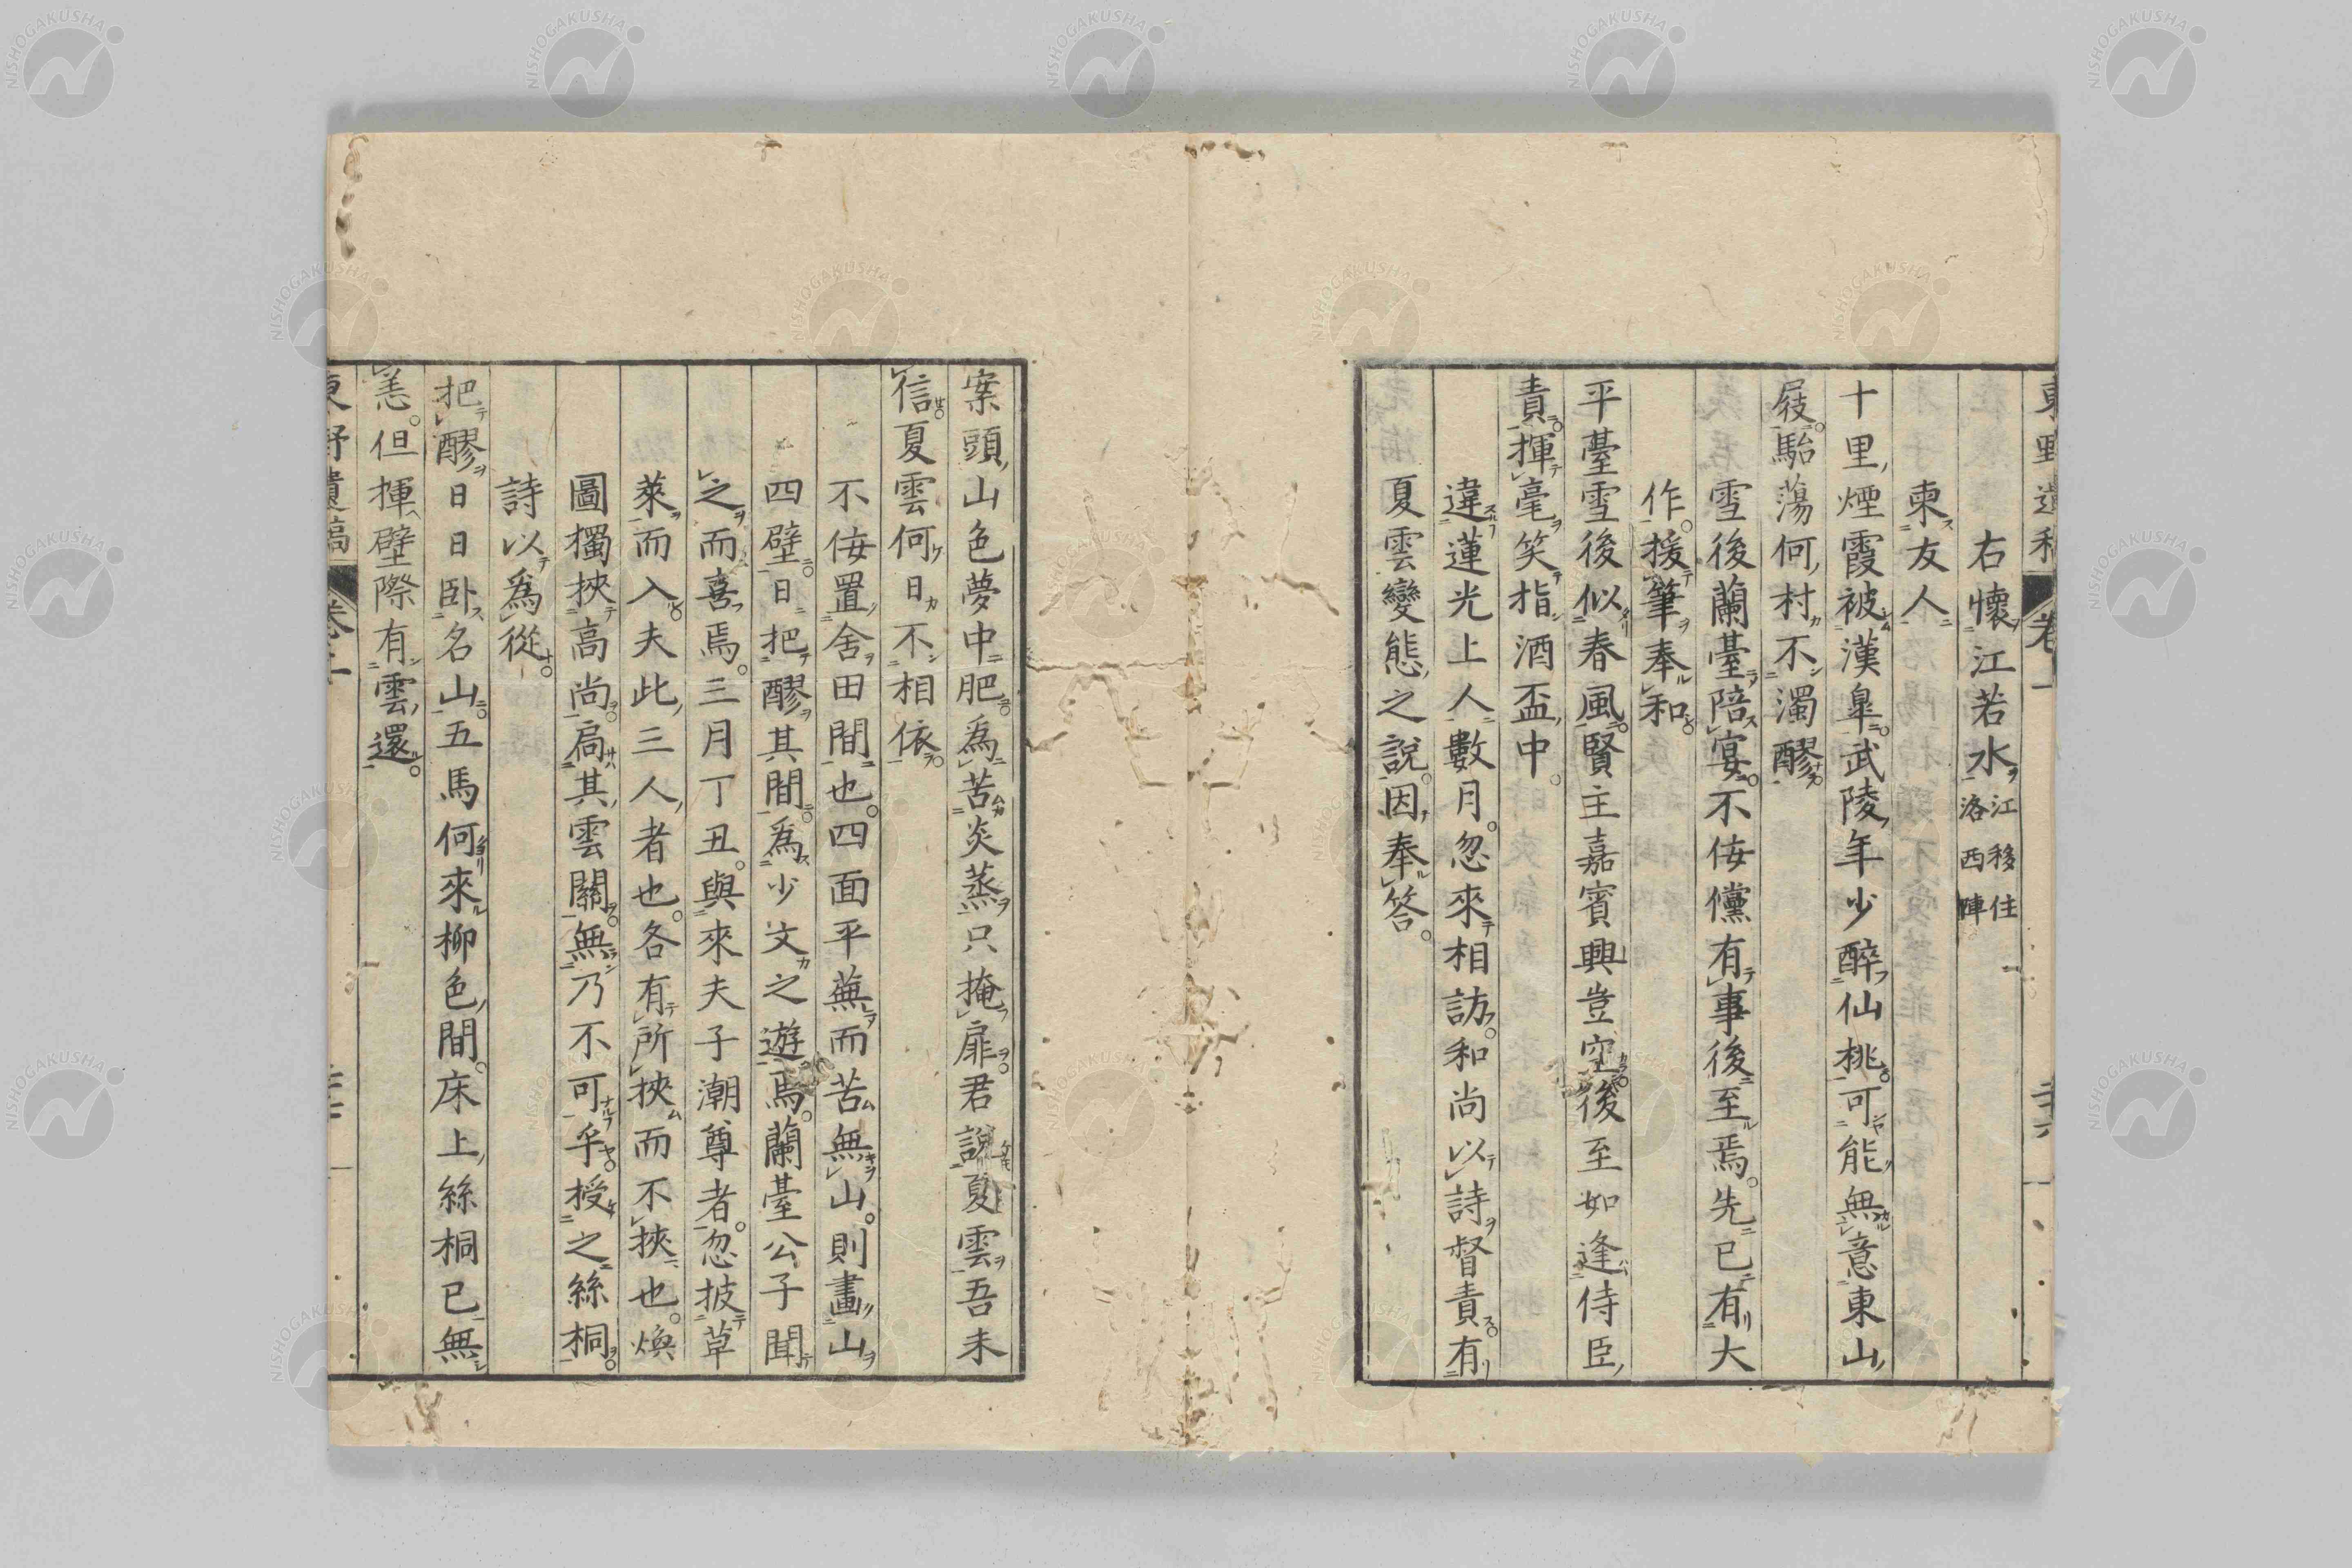 右懷江若水江移住洛西陣
柬友人
十里煙霞被漢皐武陵年少醉仙桃可能無意東山
屐駘蕩何村不濁醪
雪後蘭臺陪宴不侫儻有事後至焉先已有大
作援筆奉和
平臺雪後似春風賢主嘉賓興豈空後至如逢侍臣
責揮毫笑指酒盃中
違蓮光上人數月忽來相訪和尚以詩督責有
夏雲變態之說因奉答
案頭山色夢中肥為苦炎蒸只掩扉君說夏雲吾未
信夏雲何日不相依
不侫置舍田間也四面平蕪而苦無山則畫山
四壁日把醪其間為少文之遊焉蘭臺公子聞
之而喜焉三月丁丑與來夫子潮尊者忽披草
萊而入夫此三人者也各有所挾而不挾也煥
圖獨挾高尚扃其雲關無乃不可乎授之絲桐
詩以為從
把醪日日臥名山五馬何來柳色間床上絲桐已無
恙但揮壁際有雲還
東野遺稿 卷二